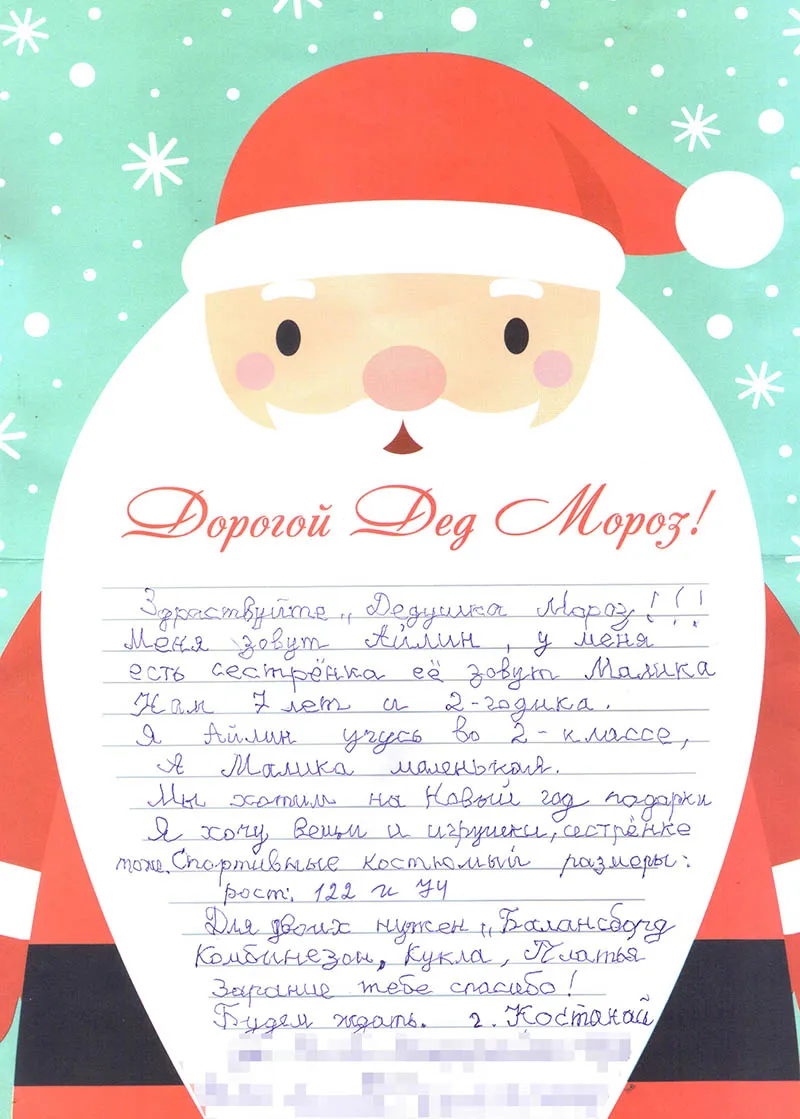 Дорогой Дед Мороз!
Здраствуйте,, Дедушка Мороз!!!
Меня зовут Айлин, у меня
есть сестрёнка её зовут Малика
Нам 7 лет и 2-годика.
Я Айлин учусь во 2-классе,
А Малика маленькая.
Мы хотим на Новый год подарки
Я хочу вещи и игрушки, сестрёнке
тоже. Спортивные костюмый размеры:
рост: 122 и 74
Для двоих нужен „Балансборд
Комбинезон, Кукла, Платья
Зарание тебе спасибо!
Будем ждать. г. Костанай